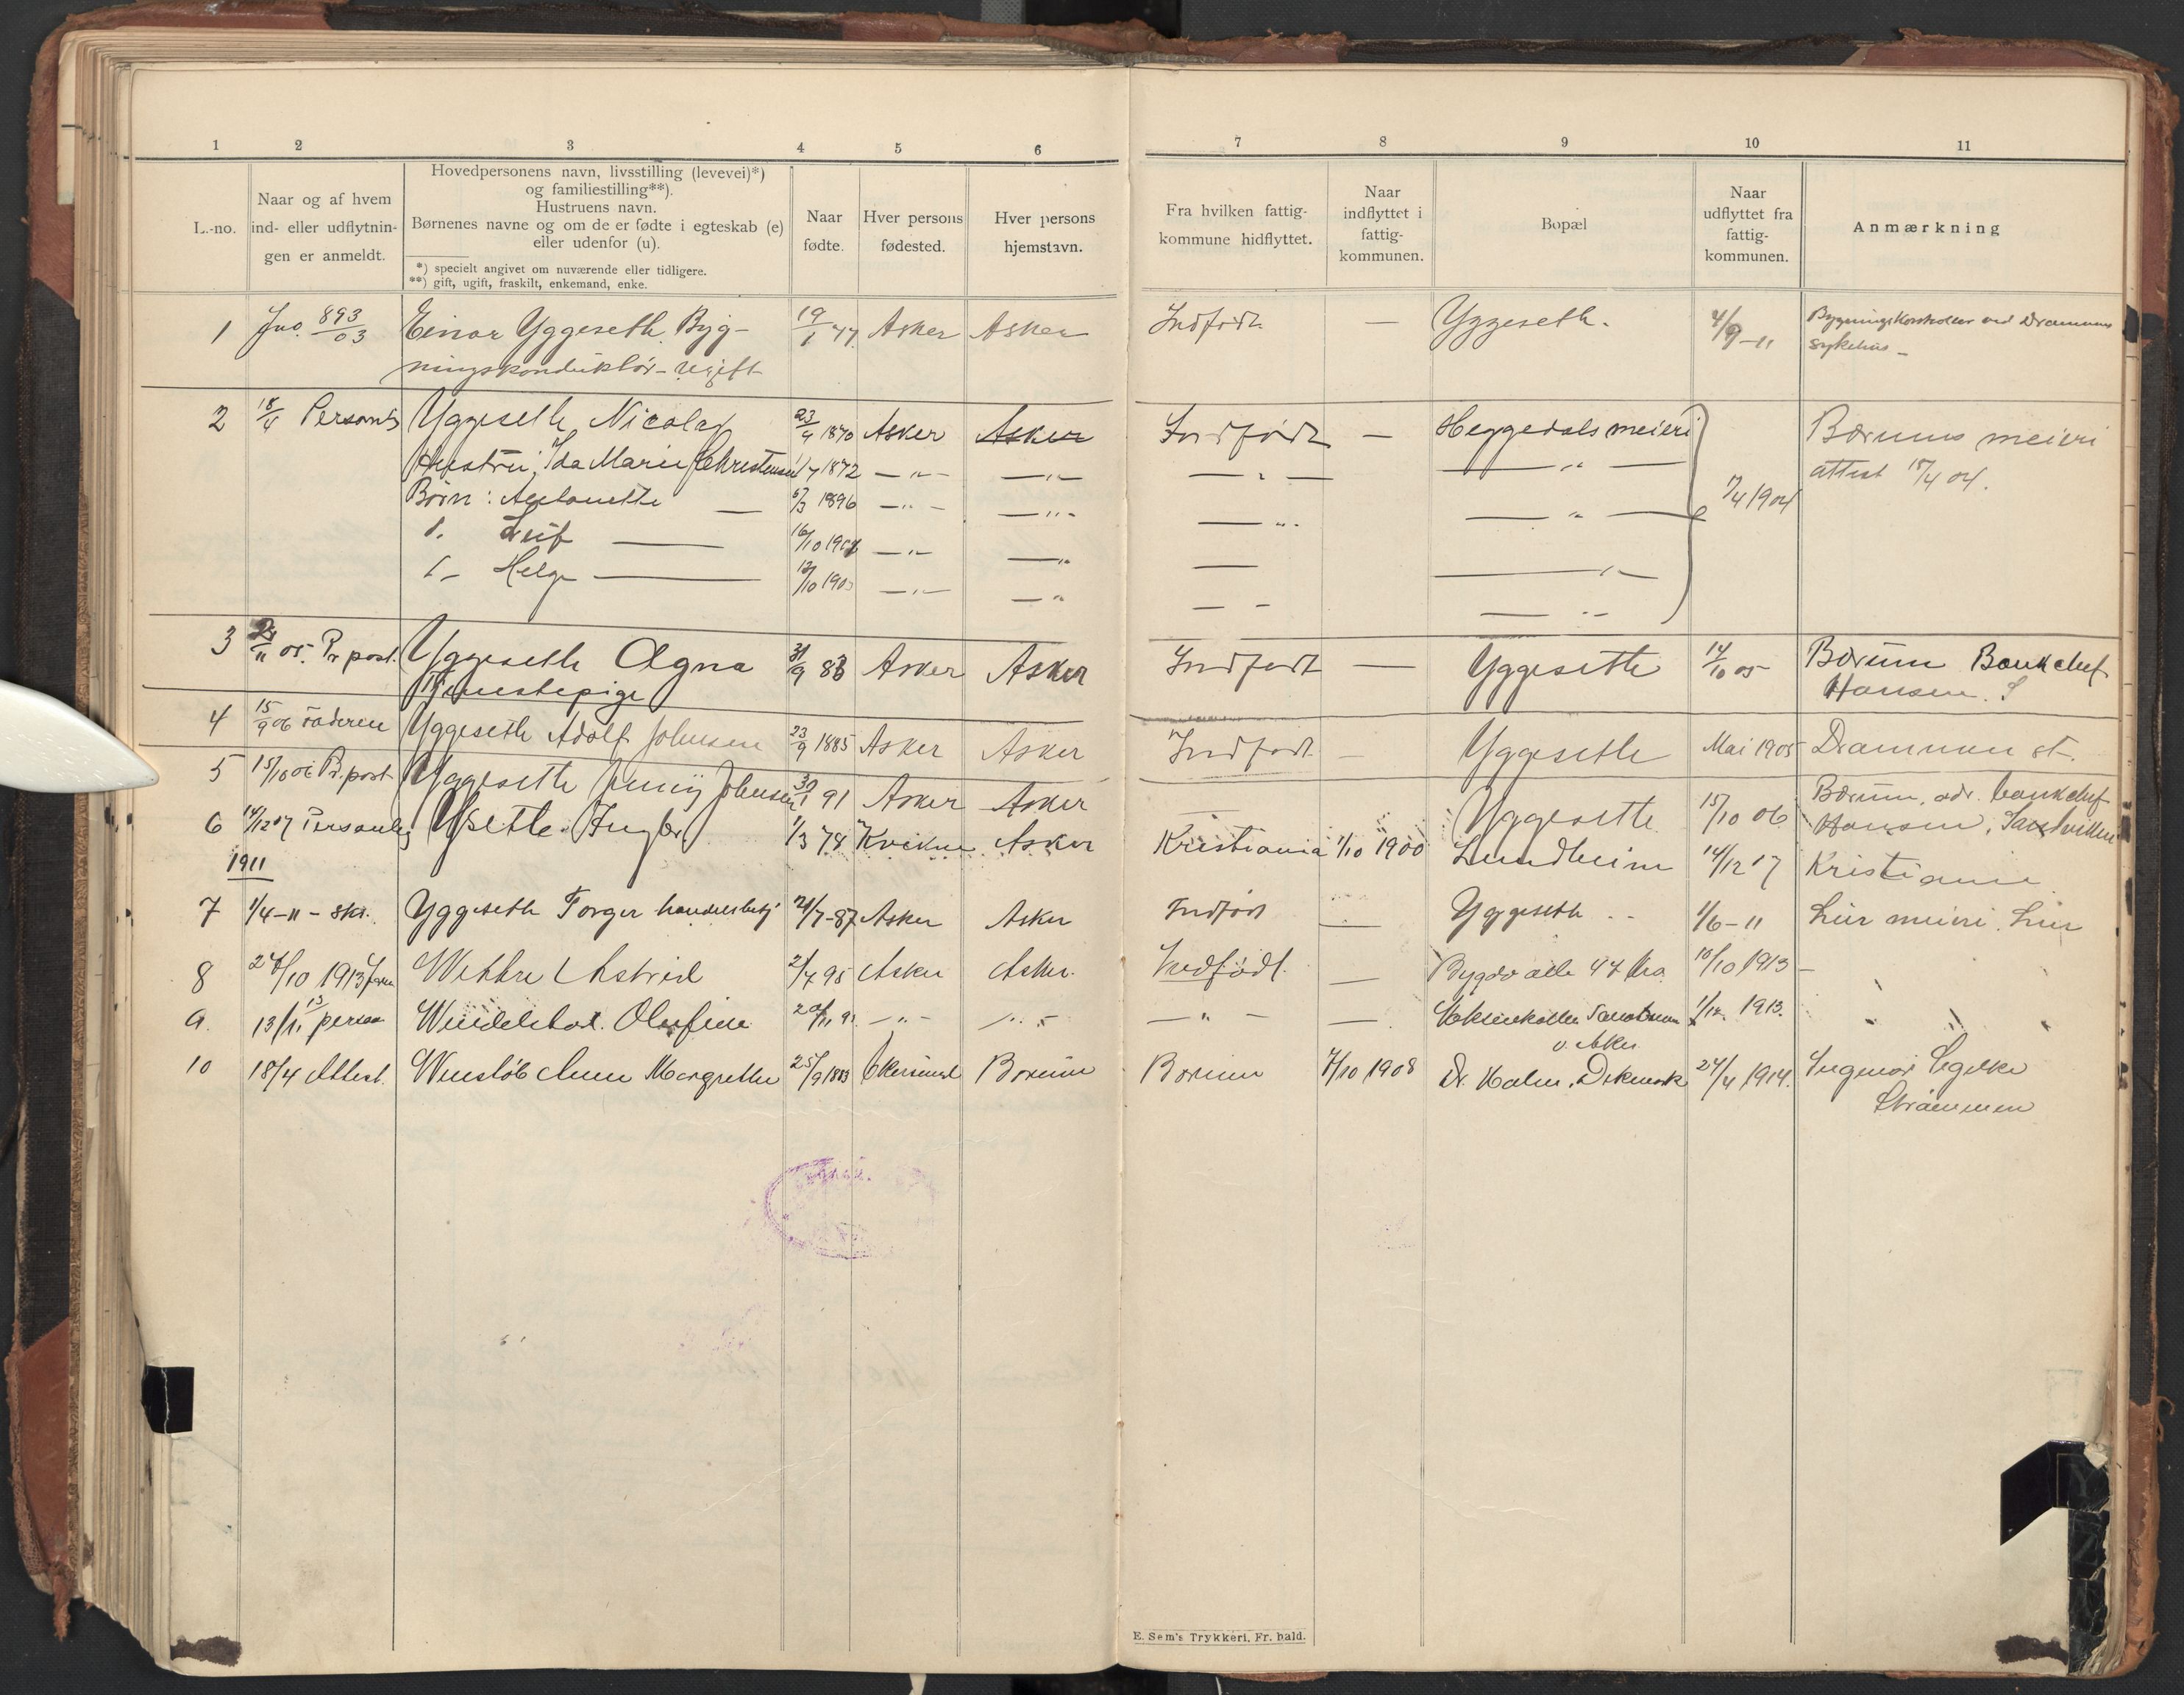 1 2 3 4 5 6 7 8 9 10 11
L.-no.
Naar og af hvem
ind- eller udflytnin-
gen er anmeldt.
Hovedpersonens navn, livsstilling (levevei)*)
og familiestilling**).
Hustruens navn.
Børnenes navne og om de er fødte i egteskab (e)
eller udenfor (u).
*) specielt angivet om nuværende eller tidligere.
**) gift, ugift, fraskilt, enkemand, enke.
Naar
fødte.
Hver persons
fødested.
Hver persons
hjemstavn.
Fra hvilken fattig-
kommune hidflyttet.
Naar
indflyttet i
fattig-
kommunen.
Bopæl
Naar
udflyttet fra
fattig-
kommunen.
Anmærkning
1 Jno. 893/03 Einar Yggeseth. Byg- 19/1 77. Asker Asker Indfødt — Yggeseth. 4/9-11 Bygningskontrollør ved Drammens
ningskonduktør - ugift sykehus -
2 18/4 Personlig Yggeseth, Nicolay 23/4 1870 Asker Asker Indfødt — Heggedals meieri Bærums meieri
Hustru, Ida Marie Christensen 1/7 1872 — " — — " — — " — — " — attest 18/4 04.
Børn: Antonette — 5/3 1896 — " — — " — — " — — " — 7/4 1904
d. Leif — 16/10 1901 — " — — " — —
d - Helge — 12/10 1903 — " — — " — " —
3 05. Pr post. Yggeseth Agna 31/9 83 Asker Asker Indfødt — Yggeseth 14/10 05 Bærum Bankchef
Tjenestepige Hansen. S
4 15/9 06 Faderen Yggeseth Adolf Johnsen 23/9 1885 Asker Asker Indfødt — Yggeseth Mai 1905 Drammen st.
5 15/10 06 Pr. post Yggeseth Jenny Johnsen 30/1 91 Asker Asker — Yggeseth 15/10 06 Bærum, adr. bankchef
Hansen, Sandviken
6 14/12 17 Personlig Ysette. Ingbr. 1/3 78 Kvikne Asker Kristiania 1/10 1900 Lundheim 14/12 17 Kristiania
1911
7 1/4-11 - skr. Yggeseth Torger handelsbetj 21/7-87 Asker Asker Indfødt — Yggeseth 1/6-11 Lier meieri. Lier
8 24/10 1913 Wettre Astrid 2/7 95 Asker Asker. Indfødt. — Bygdø alle 47 Kra. 10/10 1913 —
9. 13/11 13 person Wendelbo. Olufine 20/11 91 — " — " — " — — Voksenkollen Sanatorium 1/12. 1913.
v. Aker
10 18/4 Attest. Wensløb Anne Margrethe 25/9 1883 Bærum Bærum 7/10 1908 Dr. Holm. Dikemark 24/4 1914. Ingeniør
Strømmen
E. Sem's Trykkeri, Fr. hald.